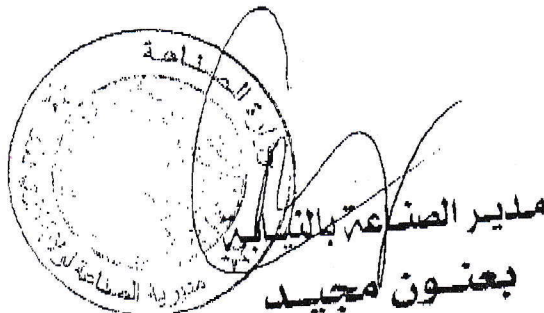 وزارة الصناعة
مديرية الصناعة
مدير الصناعة بالنيابة
بعنون مجيد